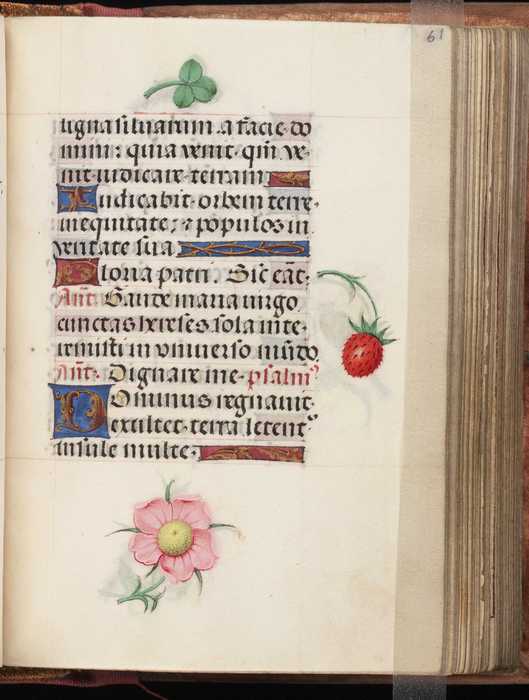 61
ligna siluarum .a facie do
mini: quia venit. qm̄ ve-
nit iudicare terram
Iudicabit orbem terre
in equitate: ⁊ populos in
veritate sua
Gloria patri. Sic̄ eāt.
Añt. Gaude maria virgo
cunctas hereses sola inte-
remisti in vniuerso mūdo
Añt. Dignare me. psalm⁹
Dominus regnauit.
exultet terra letent᷑
insule multe.